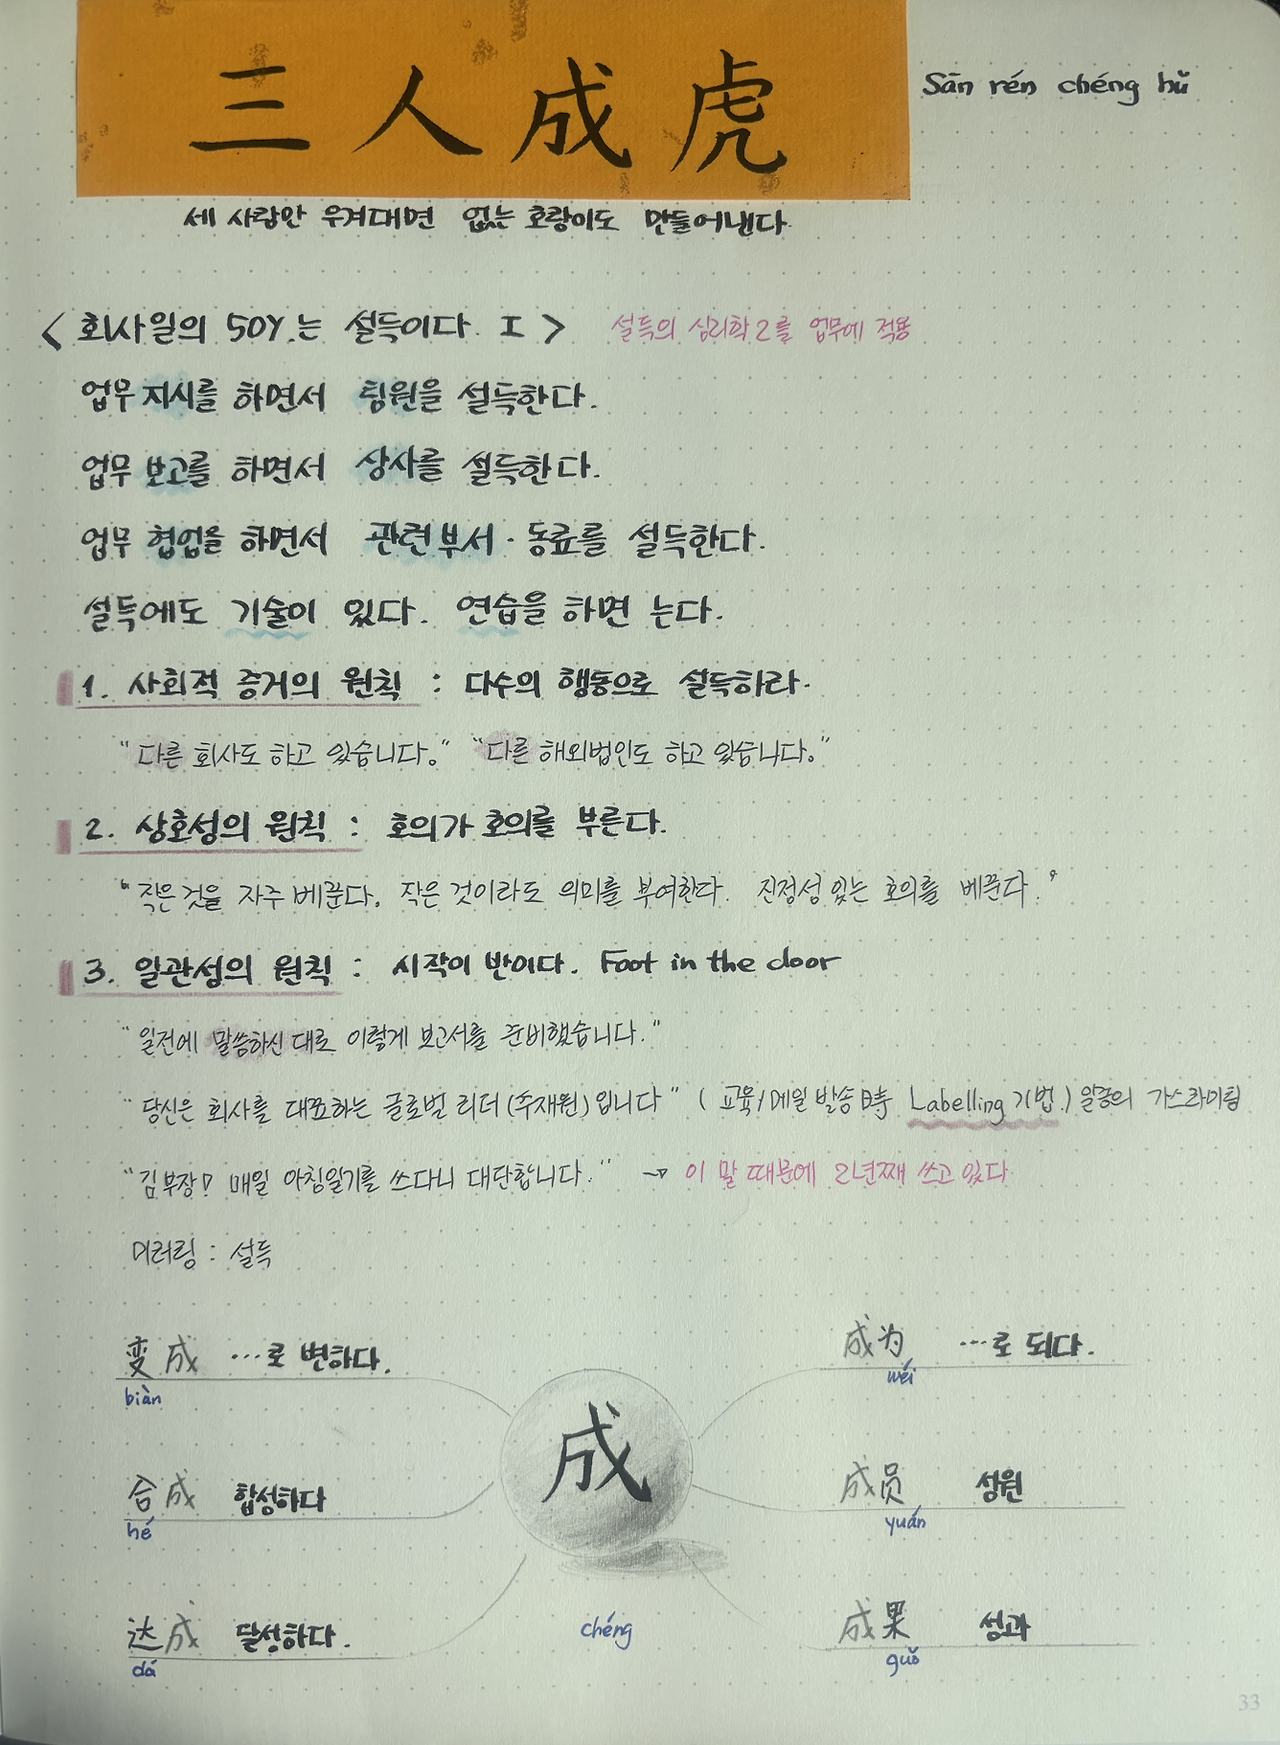 三人成虎
Sān rén chéng hǔ
세 사람만 우겨대면 없는 호랑이도 만들어낸다
< 회사일의 50%는 설득이다. I > 설득의 심리학 2를 업무에 적용
업무 지시를 하면서 팀원을 설득한다.
업무 보고를 하면서 상사를 설득한다.
업무 협업을 하면서 관련부서·동료를 설득한다.
설득에도 기술이 있다. 연습을 하면 는다.
1. 사회적 증거의 원칙 : 다수의 행동으로 설득하라.
"다른 회사도 하고 있습니다." "다른 해외법인도 하고 있습니다."
2. 상호성의 원칙 : 호의가 호의를 부른다.
"작은 것을 자주 베푼다. 작은 것이라도 의미를 부여한다. 진정성 있는 호의를 베푼다."
3. 일관성의 원칙 : 시작이 반이다. Foot in the door
"일전에 말씀하신 대로 이렇게 보고서를 준비했습니다."
"당신은 회사를 대표하는 글로벌 리더(주재원)입니다" (교육/메일 발송 時 Labelling 기법.) 일종의 가스라이팅
"김부장! 매일 아침일기를 쓰다니 대단합니다." → 이 말 때문에 2년째 쓰고 있다
미러링 : 설득
变成 …로 변하다.
biàn
合成 합성하다
hé
达成 달성하다.
dá
成
chéng
成为 …로 되다.
wéi
成员 성원
yuán
成果 성과
guǒ
33